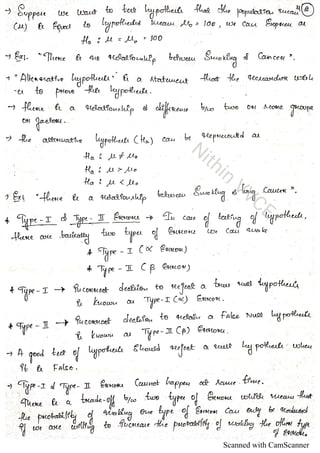 → Suppose we want to test hypothesis that the population mean
(μ) is Equal to hypothesized mean, μ₀ = 100, we can Express as
H₀ : μ = μ₀ = 100
→ Ex:- "There is no relationship between Smoking & Cancer".
→ "Alternative hypothesis" is a statement that the researcher wish
-es to prove the hypothesis.
→ there is a relationship & difference b/w two or more groups
or factors.
→ the alternative hypothesis (Hₐ) can be represented as
Hₐ : μ ≠ μ₀
Hₐ : μ > μ₀
Hₐ : μ < μ₀
→ Ex: "there is a relationship between Smoking & lung cancer".
Type-I & Type-II Errors → In case of testing of hypothesis,
there are basically two types of Errors we can make
Type - I (α Error)
Type - II (β Error)
Type-I → Incorrect decision to reject a true null hypothesis
is known as Type-I (α) Error.
Type-II → Incorrect decision to retain a False Null hypothesis
is known as Type-II (β) Error.
→ A good test of hypothesis Should reject a null hypothesis when
it is False.
→ Type-I & Type-II Errors Cannot happen at same time.
There is a trade-off b/w two types of Errors which means that
the probability of making one type of Error can only be reduced
if we are willing to increase the probability of making the other type
of Error.
Nithin VVCE
Scanned with CamScanner